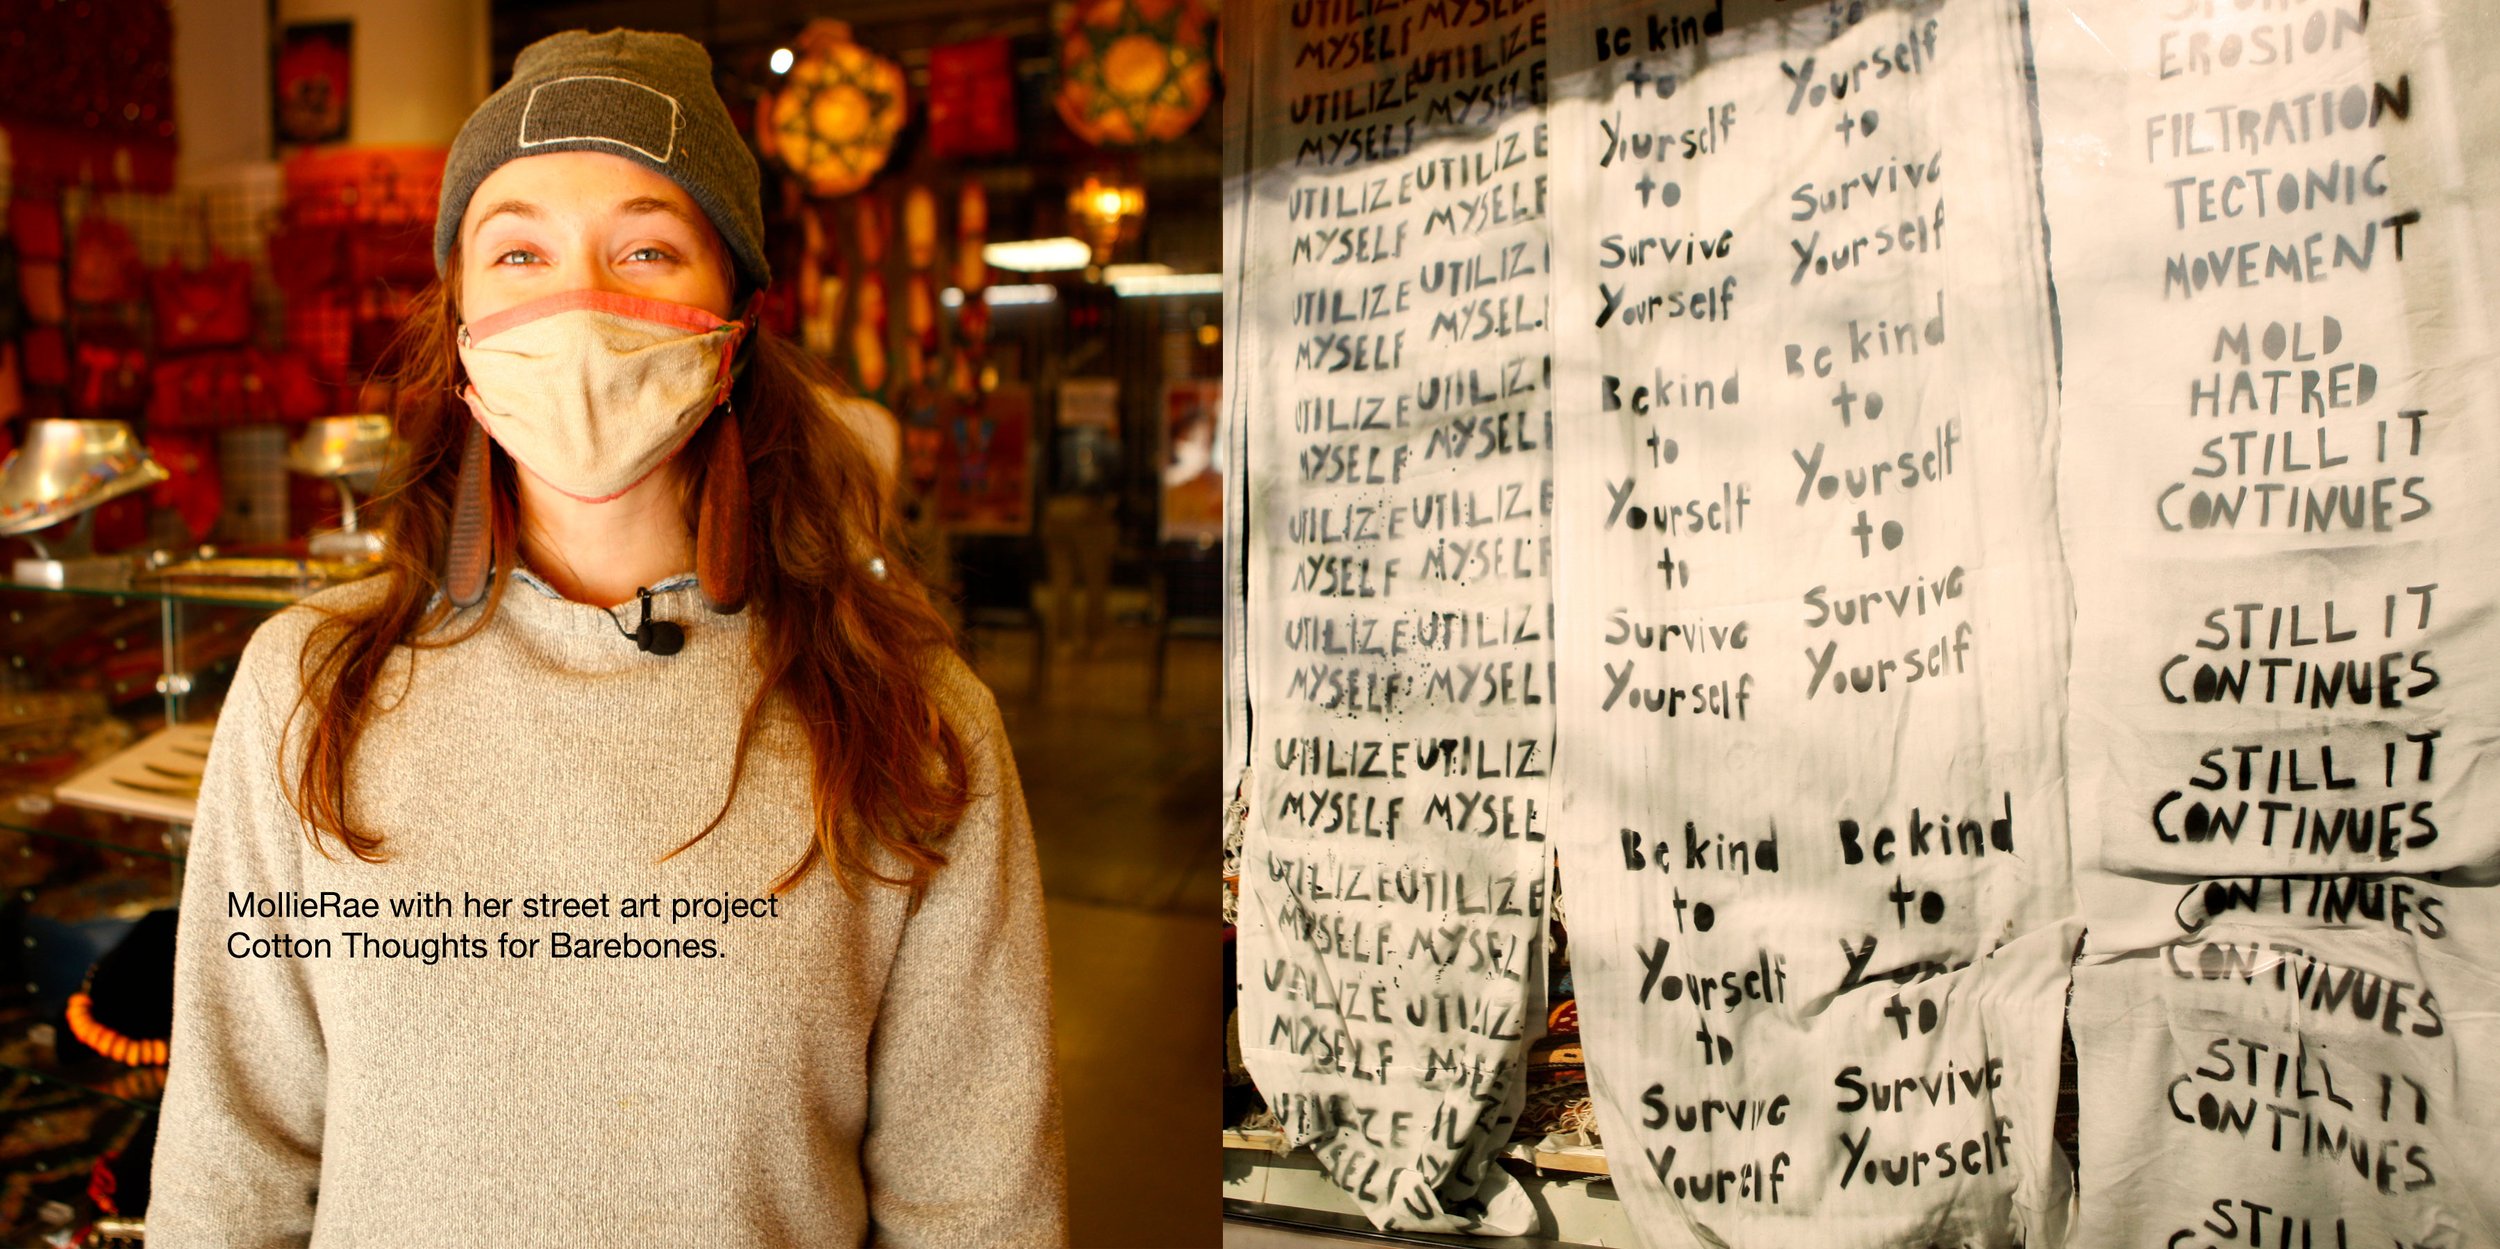 MollieRae with her street art project
Cotton Thoughts for Barebones.
UTILIZE MYSELF
MYSELF UTILIZE
UTILIZE MYSELF
MYSELF
UTILIZE UTILIZE
MYSELF MYSELF
UTILIZE
MYSELF
UTILIZE
MYSELF
UTILIZE UTILIZE
MYSELF MYSELF
UTILIZE
MYSELF
UTILIZE
MYSELF
UTILIZE UTILIZE
MYSELF MYSELF
UTILIZE
MYSELF
Be kind
to
Yourself
to
Survive
Yourself
Be kind
to
Yourself
to
Survive
Yourself
Be kind
to
Yourself
to
Survive
Yourself
to
Yourself
to
Survive
Yourself
Be kind
to
Yourself
to
Survive
Yourself
Be kind
to
to
Survive
Yourself
EROSION
FILTRATION
TECTONIC
MOVEMENT
MOLD
HATRED
STILL IT
CONTINUES
STILL IT
CONTINUES
STILL IT
CONTINUES
CONTINUES
CONTINUES
STILL IT
CONTINUES
STILL